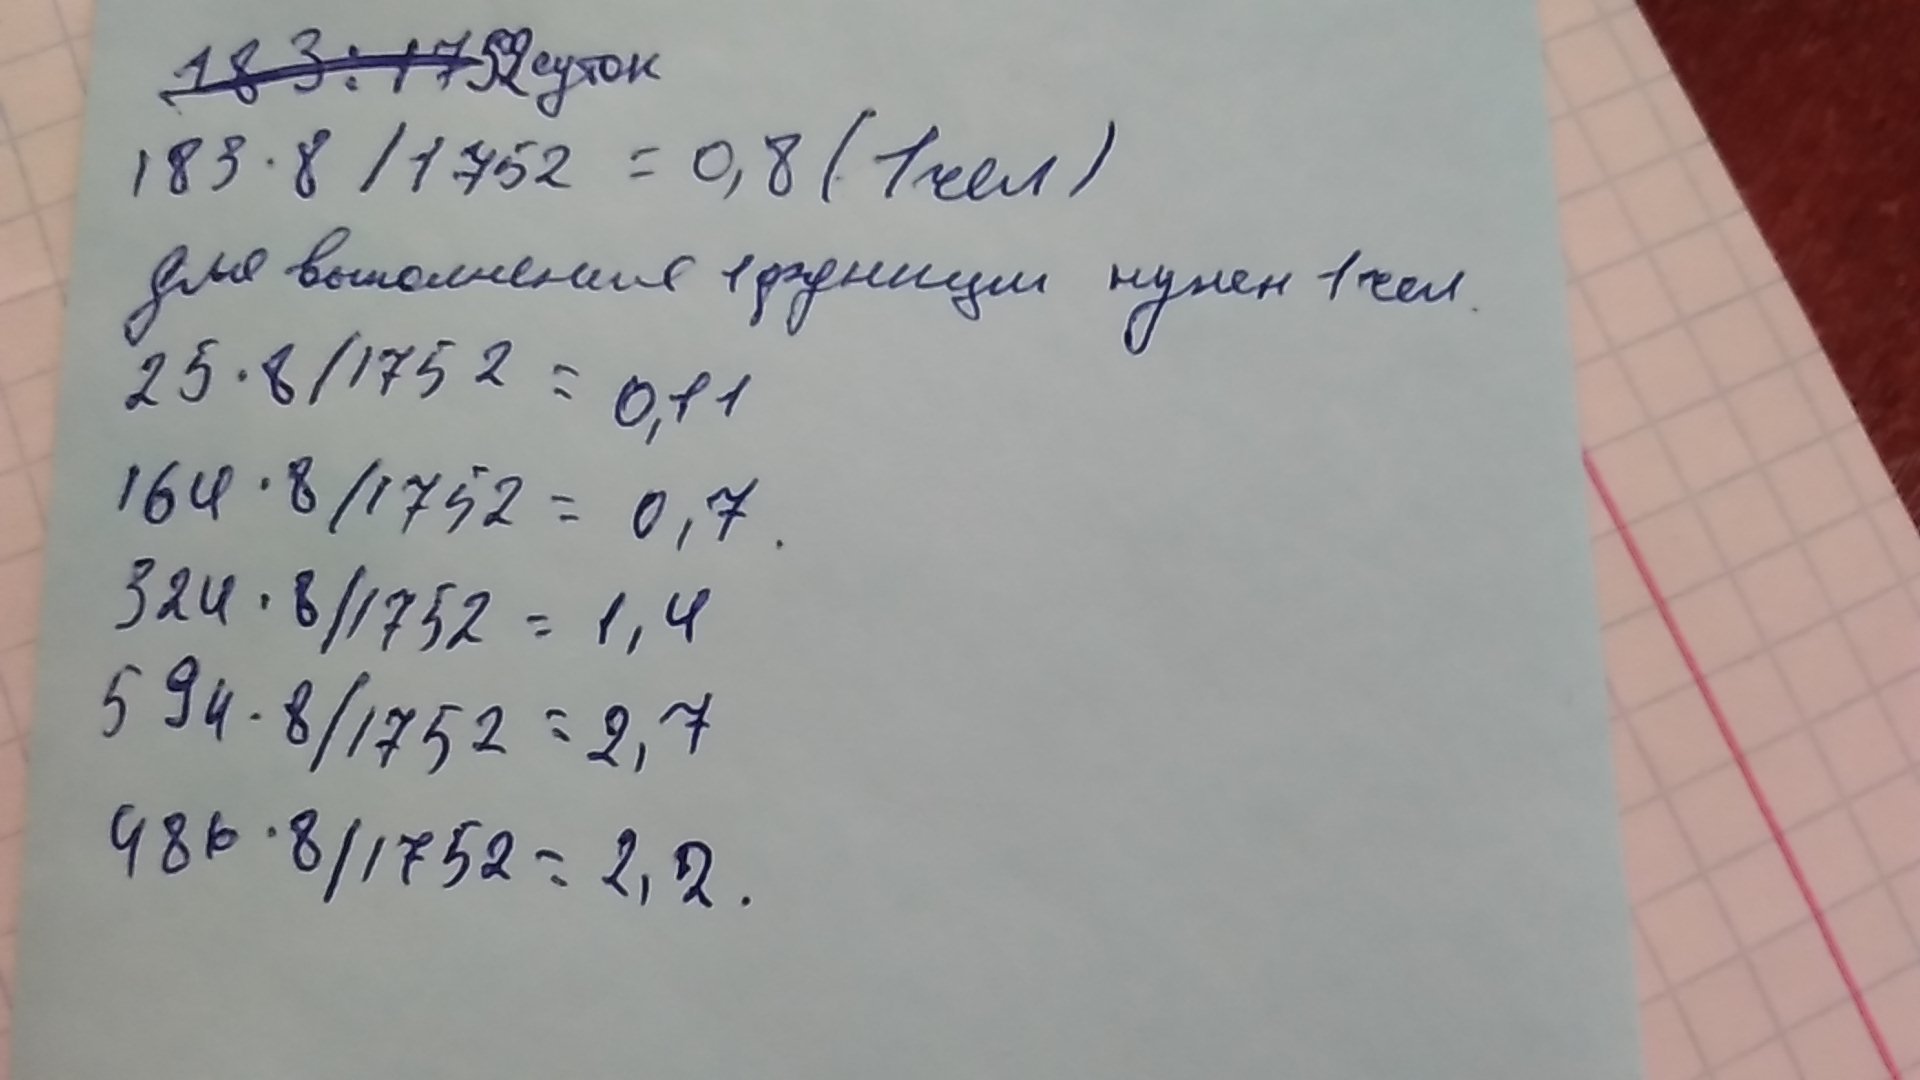 183:1752 суток
183·8/1752 = 0,8 (1чел)
для выполнения 1функции нужен 1чел.
25·8/1752 = 0,11
164·8/1752 = 0,7.
324·8/1752 = 1,4
594·8/1752 = 2,7
486·8/1752 = 2,2.